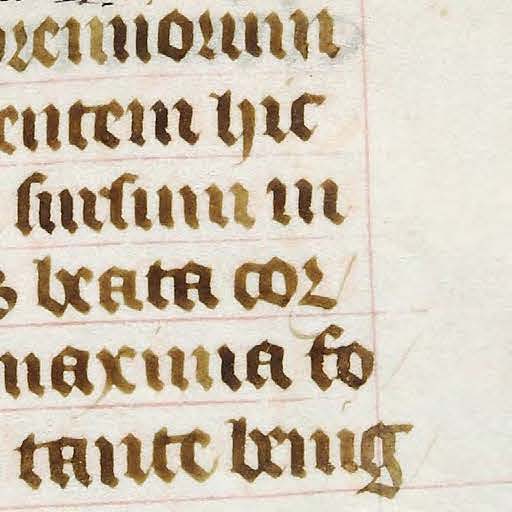 entem hic
sursum in
beata cor
maxima fo
tante benig